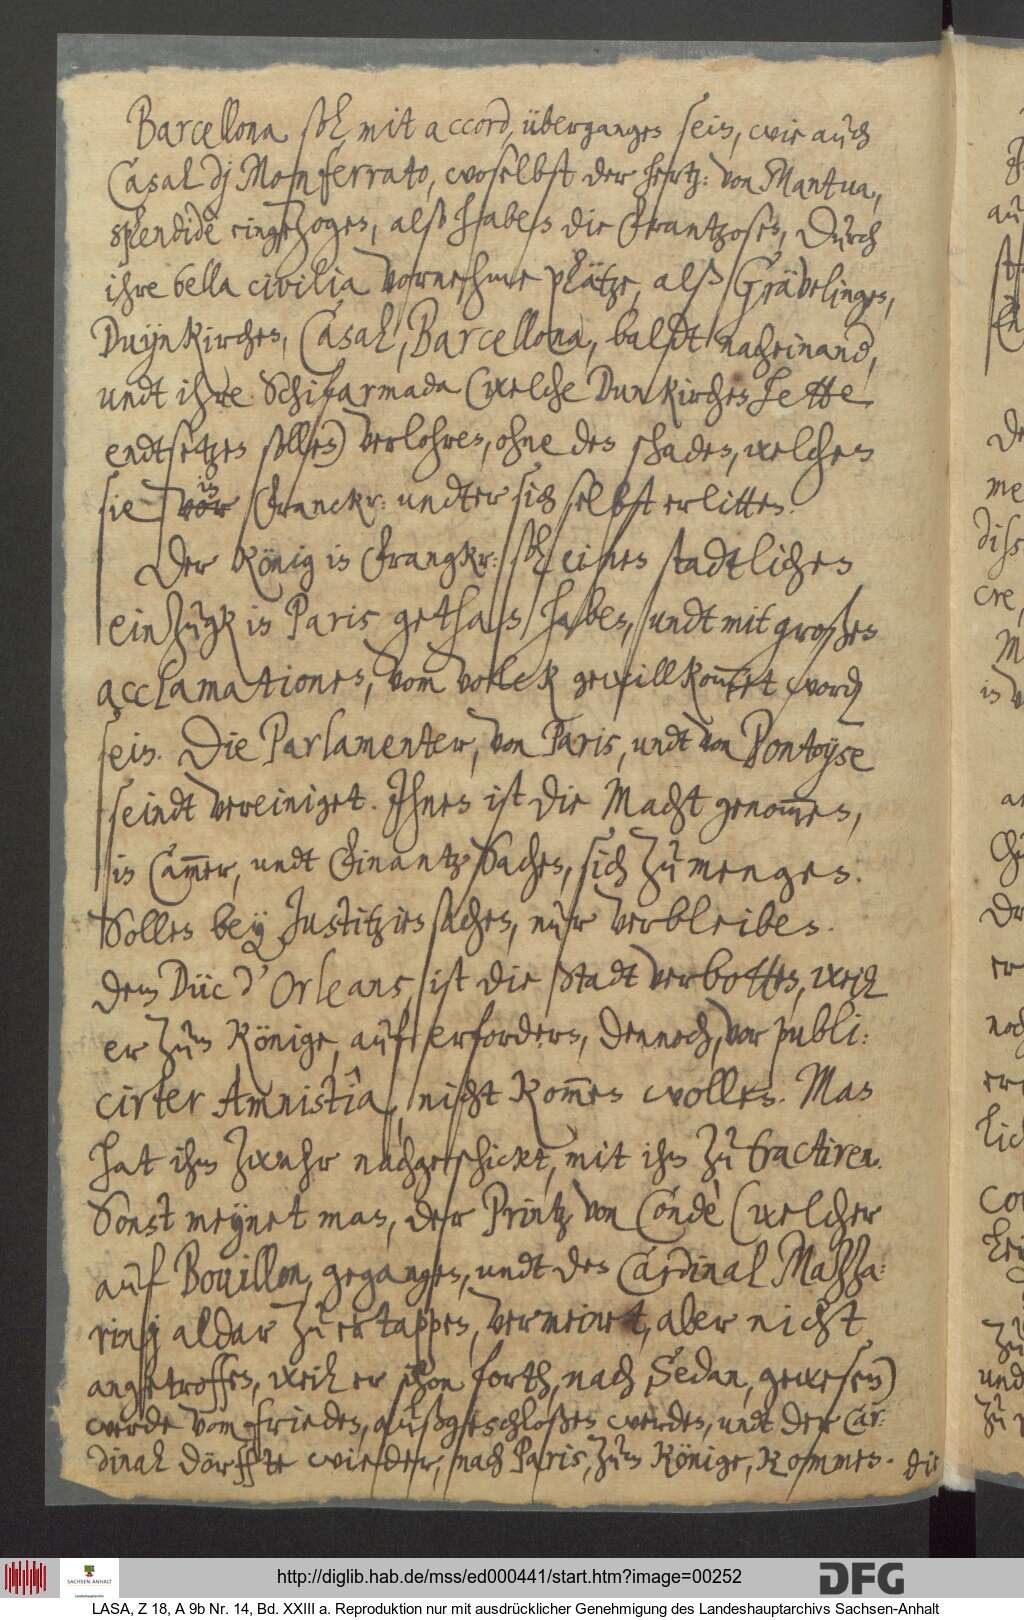 Barcellona soll mit accord, übergangen sein, wie auch
Casal dj Monferrato, woselbst der Hertz: von Mantua,
splendide eingezogen, alß haben die Frantzosen, durch
ihre bella civilia vornehme plätze, alß Grävelingen,
Duynkirchen, Casal, Barcellona, baldt nacheinand,
undt ihre Schifarmada (welche Dunkirchen hette
endtsetzen sollen) verlohren, ohne den schaden, welchen
sie vor in Franckr: undter sich selbst erlitten.
Der König in Frangkr: soll einen stadtlichen
einzugk in Paris gethan haben, undt mit großen
acclamationen, vom volck gewillkom̅et word
sein. Die Parlamenter, von Paris, undt von Pontoyse
seindt vereiniget. Ihnen ist die Macht genom̅en,
in Cam̅er, undt Finantz Sachen, sich zu mengen.
Sollen bey Justitzien sachen, nur verbleiben.
dem Düc d'Orleans, ist die Stadt verbotten, weil
er zum Könige, auf erfordern, dennoch, vor publi:
cirter Amnistîa, nicht kom̅en wollen. Man
hat ihm zwahr nachgeschickt, mit ihm zu tractiren.
Sonst meynet man, der Printz von Condè (welcher
auf Bouillon, gegangen, undt den Cardinal Mazza:
rinj aldar zu ertappen, vermeinet, aber nicht
angetroffen, weil er schon forth, nach Sedan, gewesen)
werde vom frieden, außgeschloßen werden, undt der Car:
dinal dörffte wieder, nach Paris, zum Könige, kommen. Die
http://diglib.hab.de/mss/ed000441/start.htm?image=00252
SACHSEN-ANHALT
DFG
LASA, Z 18, A 9b Nr. 14, Bd. XXIII a. Reproduktion nur mit ausdrücklicher Genehmigung des Landeshauptarchivs Sachsen-Anhalt